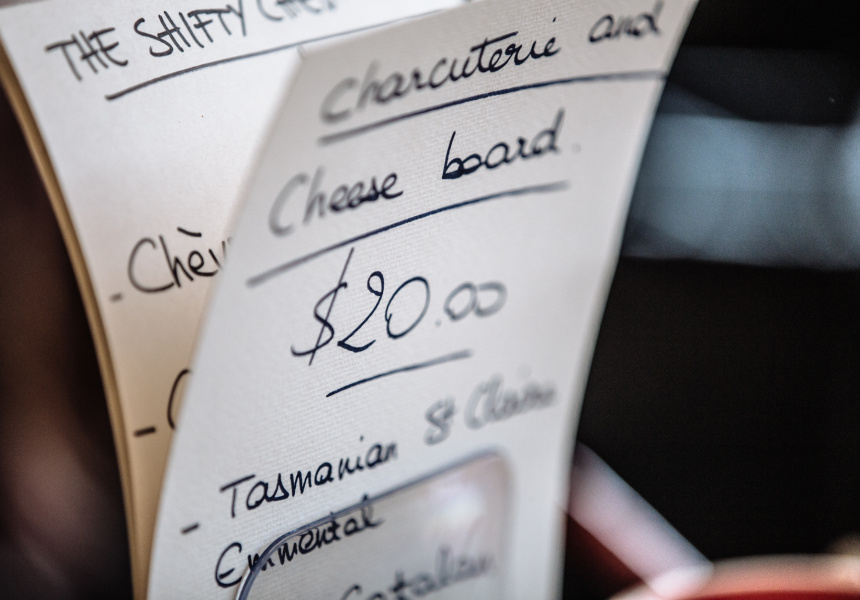 THE SHIFTY
- Chèv
-
Charcuterie and
Cheese board.
$20.00
- Tasmanian St Claire
Emmental